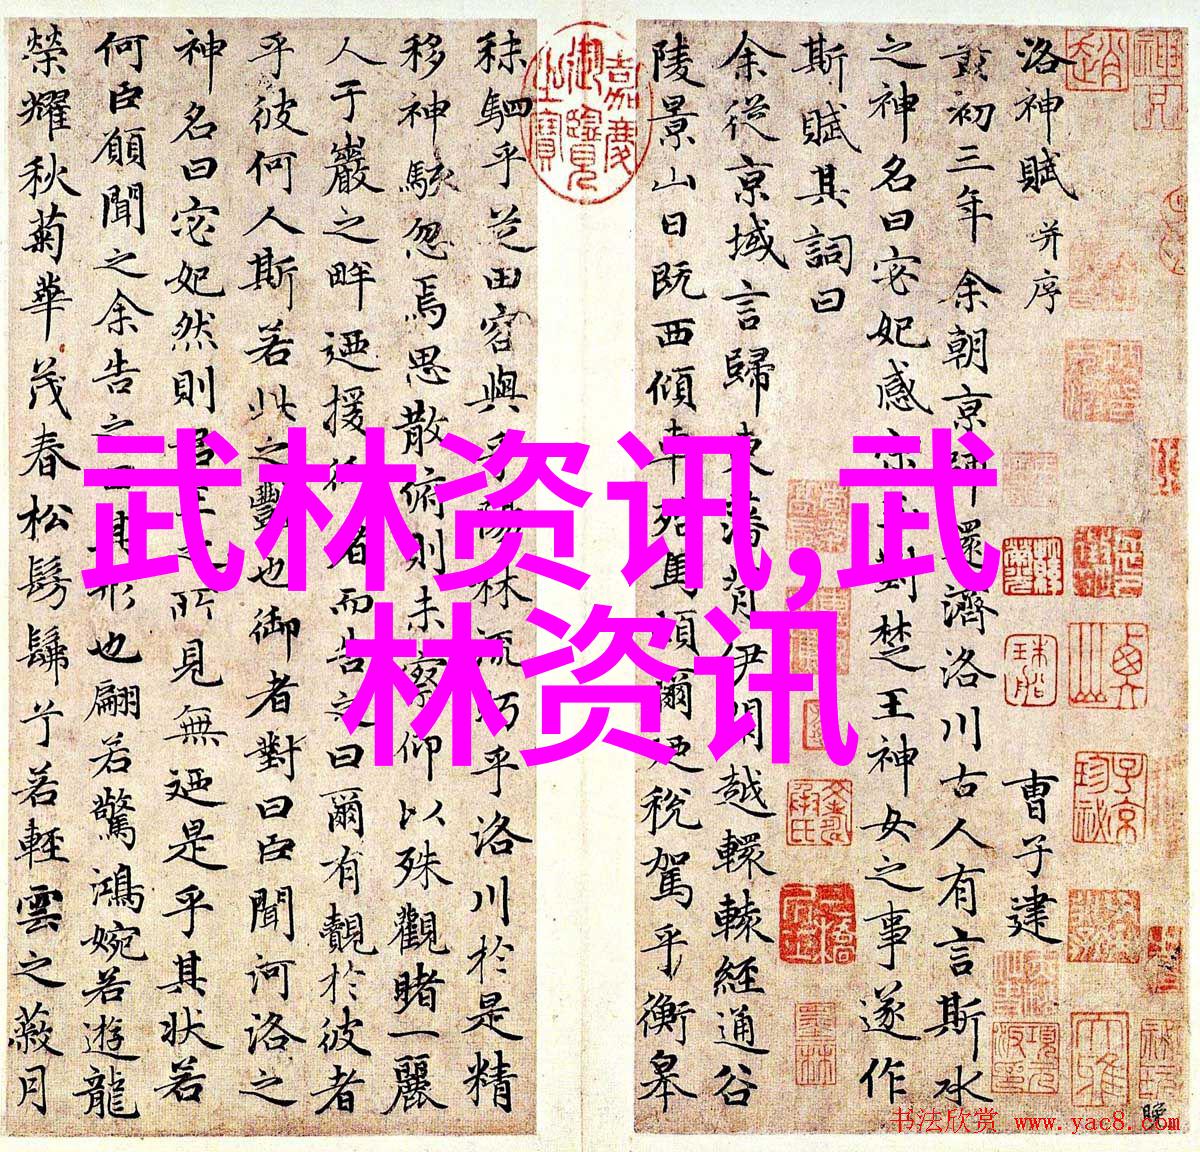 洛神賦 并序
曹子建
黃初三年余朝京師還濟洛川古人有言斯水
之神名曰宓妃感宋玉對楚王神女之事遂作
斯賦其詞曰
余從京域言歸東藩背伊闕越轘轅經通谷
陵景山日既西傾車殆馬煩爾迺稅駕乎衡皋
秣駟乎芝田容與乎陽林流眄乎洛川於是精
移神駭忽焉思散俯則未察仰以殊觀睹一麗
人于巖之畔迺援御者而告之曰爾有覿於彼者
乎彼何人斯若此之豔也御者對曰臣聞河洛之
神名曰宓妃然則君王之所見無迺是乎其狀若
何臣願聞之余告之曰其形也翩若驚鴻婉若遊龍
榮耀秋菊華茂春松髣髴兮若輕雲之蔽月
嘉慶御覽之寶
武林资讯,武
林资讯
书法欣赏 www.yac8.com